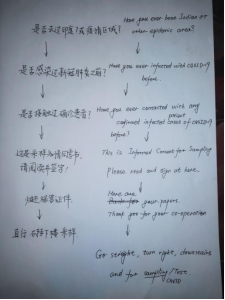 是否去过印度/或疫情区域?
Have you ever been Indian or
other epidemic area?
是否感染过新冠肺炎之前?
Have you ever infected with COVID-19
before
是否接触过确诊患者?
Have you ever contacted with any
patient
confirmed infected cases of COVID-19
before?
这是采样知情同意书
请阅读并签字!
This is Informed Consent for Sampling
Please read and sign at here.
证件
Here are
your papers
Thank you for your co-operation
直行 右转下楼采样
Go straight, turn right, downstairs
and for sampling/Test.
COVID